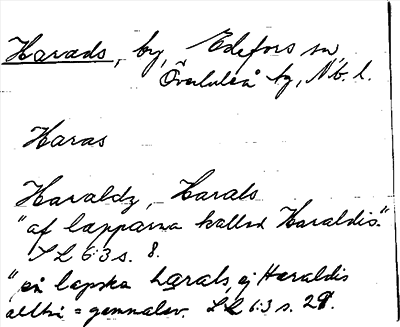 Harads, by, Edefors sn,
Överluleå tg, Nb. l.
Haras
Haraldz, Harals
"af lapparna kallad Haraldis."
LL 6:3 s. 8.
"på lapska harals, ej Haraldis
alltså = gammalsv. LL 6:3 s. 28.